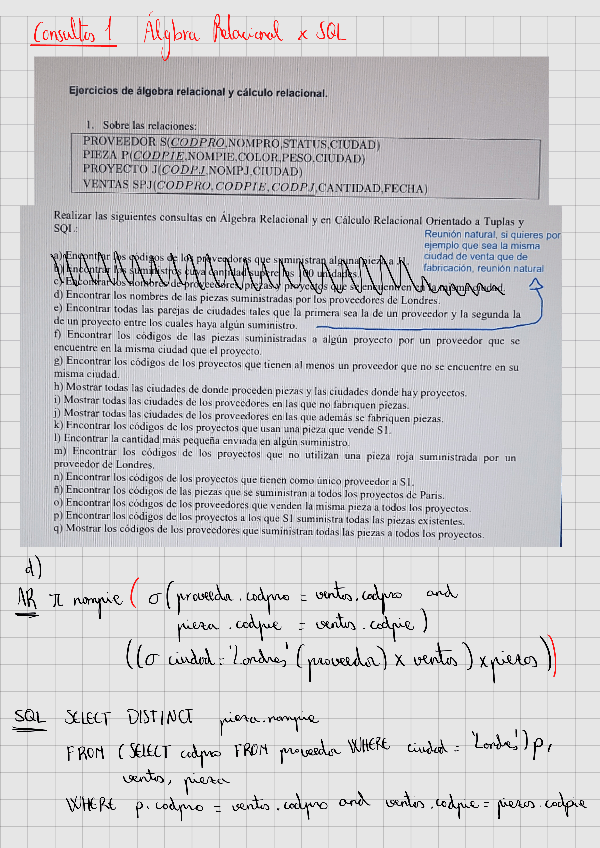 Consultas 1 Álgbra Relacional x SQL
Ejercicios de álgebra relacional y cálculo relacional.
1. Sobre las relaciones:
PROVEEDOR S(CODPRO,NOMPRO,STATUS,CIUDAD)
PIEZA P(CODPIE,NOMPIE,COLOR,PESO,CIUDAD)
PROYECTO J(CODPJ,NOMPJ,CIUDAD)
VENTAS SPJ(CODPRO,CODPIE,CODPJ,CANTIDAD,FECHA)
Realizar las siguientes consultas en Álgebra Relacional y en Cálculo Relacional Orientado a Tuplas y
SQL:
Reunión natural, si quieres por
ejemplo que sea la misma
ciudad de venta que de
fabricación, reunión natural
a) Encontrar los códigos de los proveedores que suministran alguna pieza a
b) Encontrar los suministros cuya cantidad supere las 100 unidades
Encontrar los nombres de proveedores, piezas y proyectos que se encuentren en la misma ciudad.
d) Encontrar los nombres de las piezas suministradas por los proveedores de Londres.
e) Encontrar todas las parejas de ciudades tales que la primera sea la de un proveedor y la segunda la
de un proyecto entre los cuales haya algún suministro.
f) Encontrar los códigos de las piezas suministradas a algún proyecto por un proveedor que se
encuentre en la misma ciudad que el proyecto.
g) Encontrar los códigos de los proyectos que tienen al menos un proveedor que no se encuentre en su
misma ciudad.
h) Mostrar todas las ciudades de donde proceden piezas y las ciudades donde hay proyectos.
i) Mostrar todas las ciudades de los proveedores en las que no fabriquen piezas.
j) Mostrar todas las ciudades de los proveedores en las que además se fabriquen piezas.
k) Encontrar los códigos de los proyectos que usan una pieza que vende S1.
l) Encontrar la cantidad más pequeña enviada en algún suministro.
m) Encontrar los códigos de los proyectos que no utilizan una pieza roja suministrada por un
proveedor de Londres.
n) Encontrar los códigos de los proyectos que tienen como único proveedor a S1.
ñ) Encontrar los códigos de las piezas que se suministran a todos los proyectos de Paris.
o) Encontrar los códigos de los proveedores que venden la misma pieza a todos los proyectos.
p) Encontrar los códigos de los proyectos a los que S1 suministra todas las piezas existentes.
q) Mostrar los códigos de los proveedores que suministran todas las piezas a todos los proyectos.
d)
AR π nompie ( σ (proveedor.codpro = ventas.codpro and
pieza.codpie = ventas.codpie)
((σ ciudad='Londres' (proveedor) x ventas) x piezas))
SQL SELECT DISTINCT pieza.nompie
FROM (SELECT codpro FROM proveedor WHERE ciudad = 'Londres') p,
ventas, pieza
WHERE p.codpro = ventas.codpro and ventas.codpie = piezas.codpie